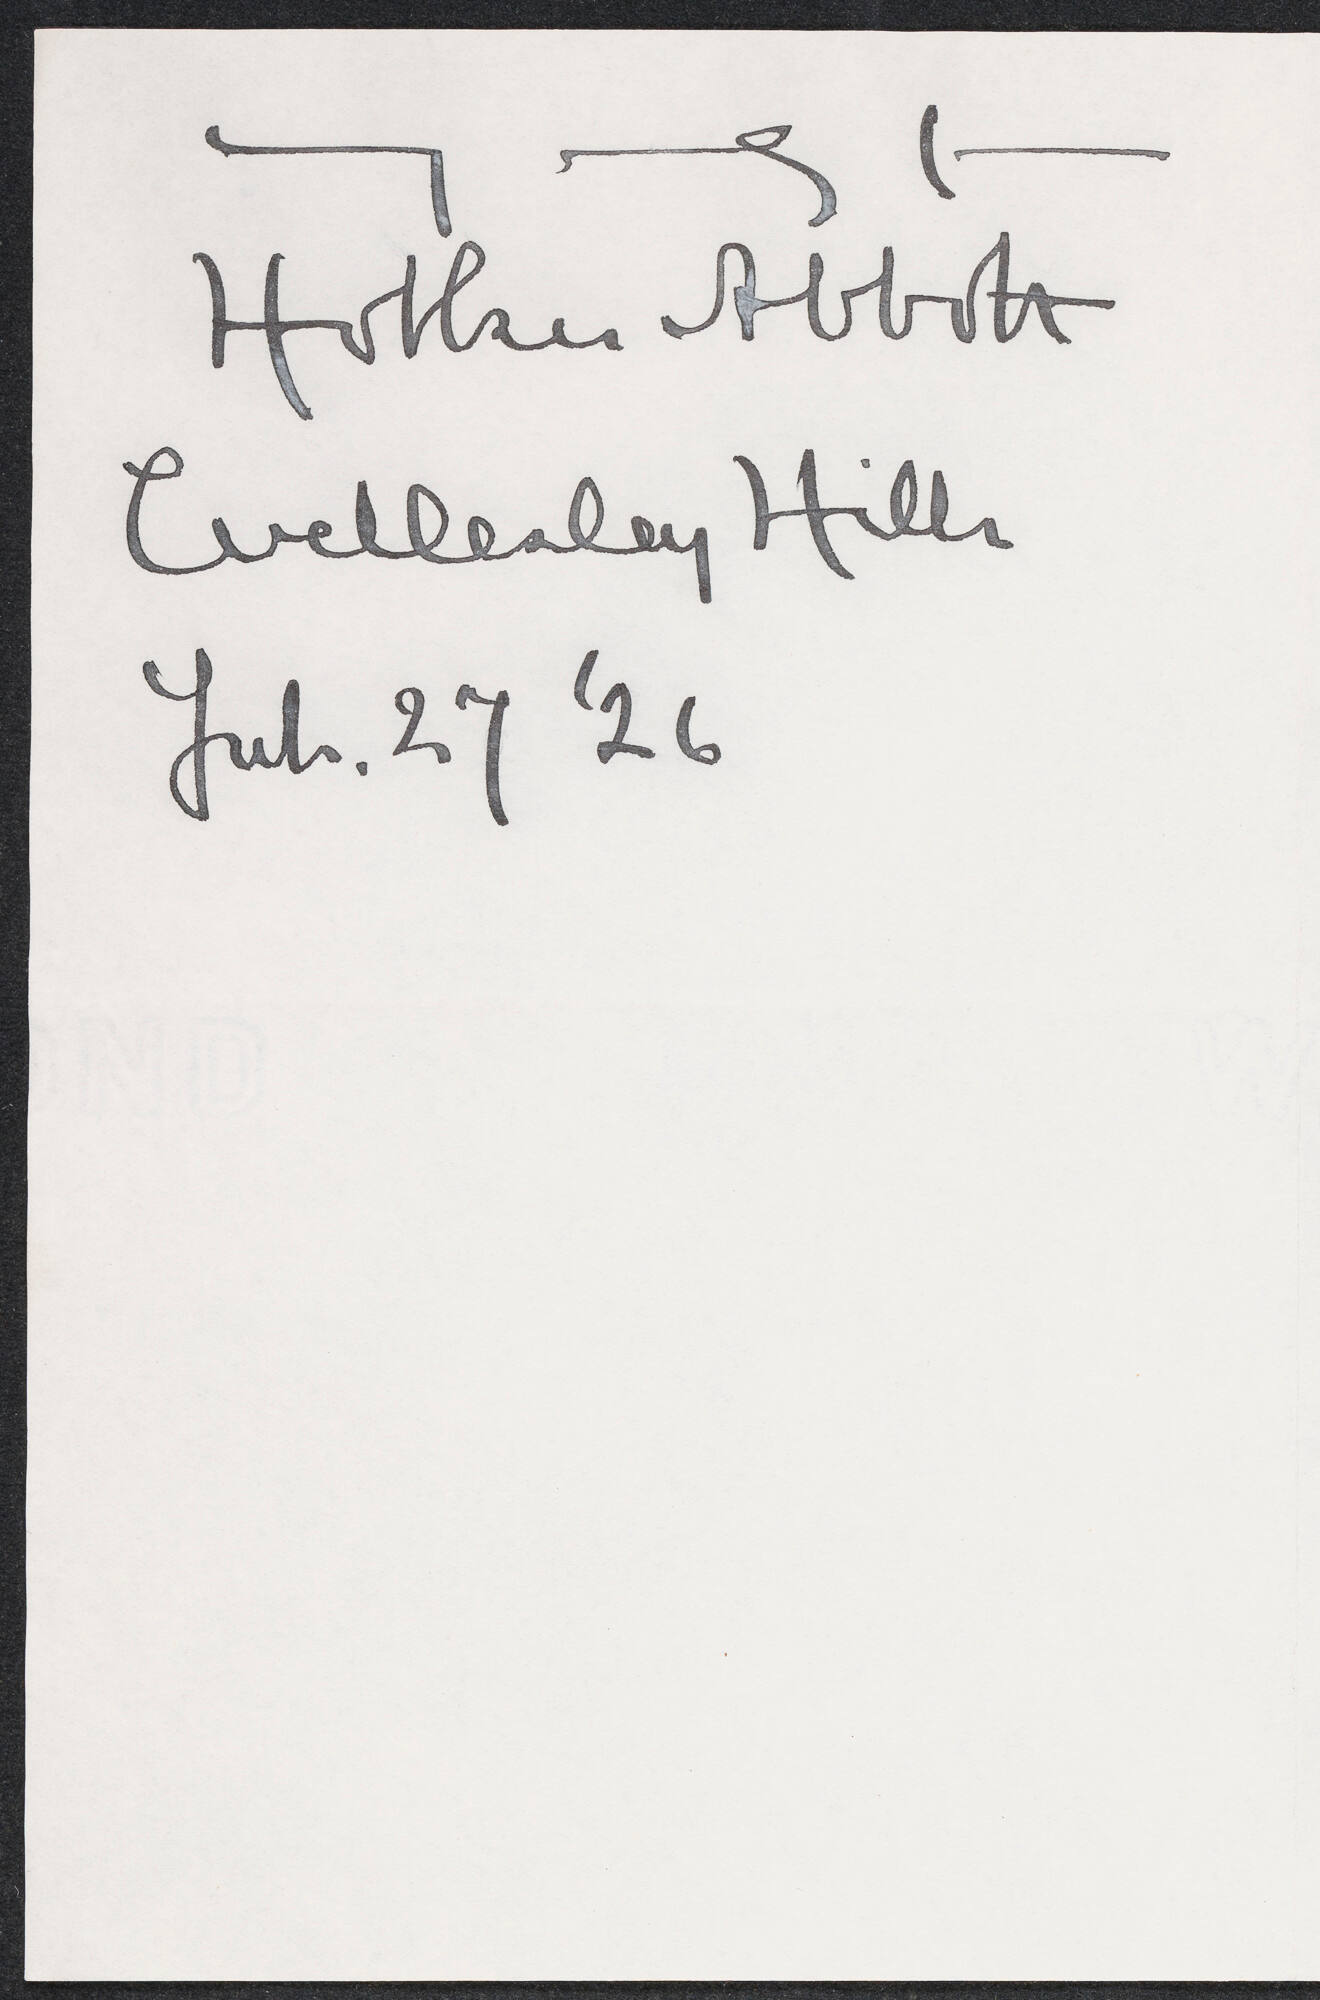 Holker Abbott
Wellesley Hills
Feb. 27 '26